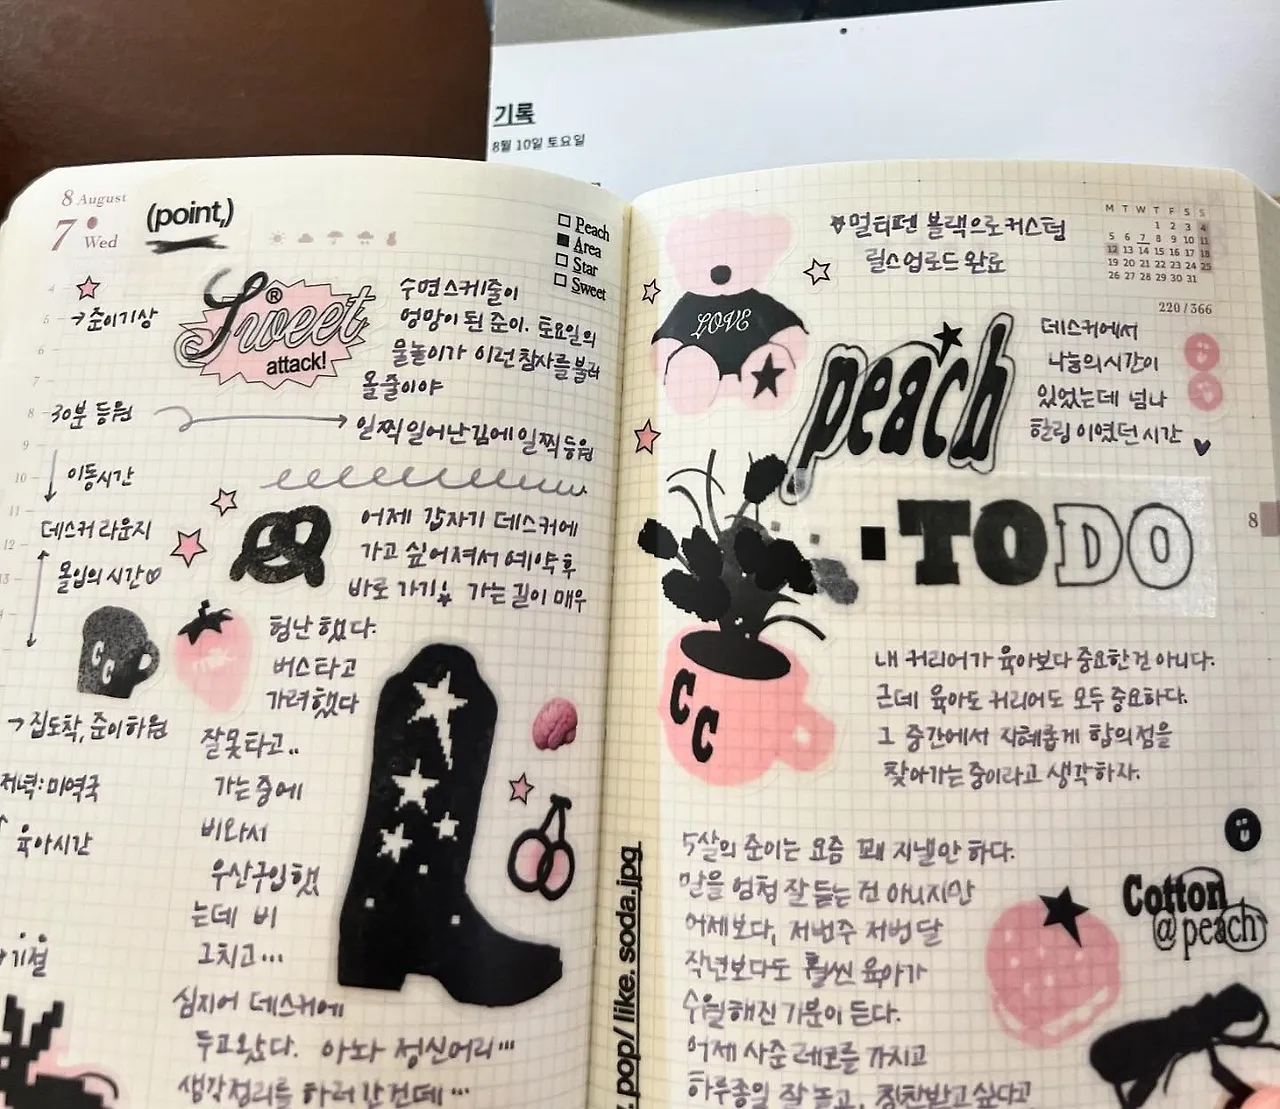 기록
8월 10일 토요일
8 August
7 Wed
(point,)
Peach
Area
Star
Sweet
Sweet®
attack!
4
5
6
7
8
9
10
11
12
13
→준이기상
30분 등원
이동시간
데스커 라운지
몰입의 시간♡
→ 집도착, 준이하원
저녁: 미역국
육아시간
기절
수면스케줄이
엉망이 된 준이. 토요일의
물놀이가 이런 참사를 불러
올 줄이야
일찍 일어난 김에 일찍 등원
어제 갑자기 데스커에
가고 싶어져서 예약 후
바로 가기! 가는 길이 매우
험난 했다.
버스타고
가려했다
잘못타고..
가는 중에
비와서
우산구입했
는데 비
그치고...
심지어 데스커에
두고왔다. 아놔 정신머리...
생각정리를 하러 간건데...
CC
LOVE
멀티펜 블랙으로 커스텀
릴스 업로드 완료
M T W T F S S
1 2 3 4
5 6 7 8 9 10 11
12 13 14 15 16 17 18
19 20 21 22 23 24 25
26 27 28 29 30 31
220 / 366
데스커에서
나눔의 시간이
있었는데 넘나
힐링이였던 시간
peach
TO DO
8
CC
내 커리어가 육아보다 중요한건 아니다.
근데 육아도 커리어도 모두 중요하다.
그 중간에서 지혜롭게 합의점을
찾아가는 중이라고 생각하자.
5살의 준이는 요즘 꽤 지낼만 하다.
말을 엄청 잘 듣는 건 아니지만
어제보다, 저번주 저번달
작년보다도 훨씬 육아가
수월해진 기분이 든다.
어제 사준 레코를 가지고
하루종일 잘 놀고, 칭찬받고 싶다고
Cotton
@peach
pop/ like. soda.jpg